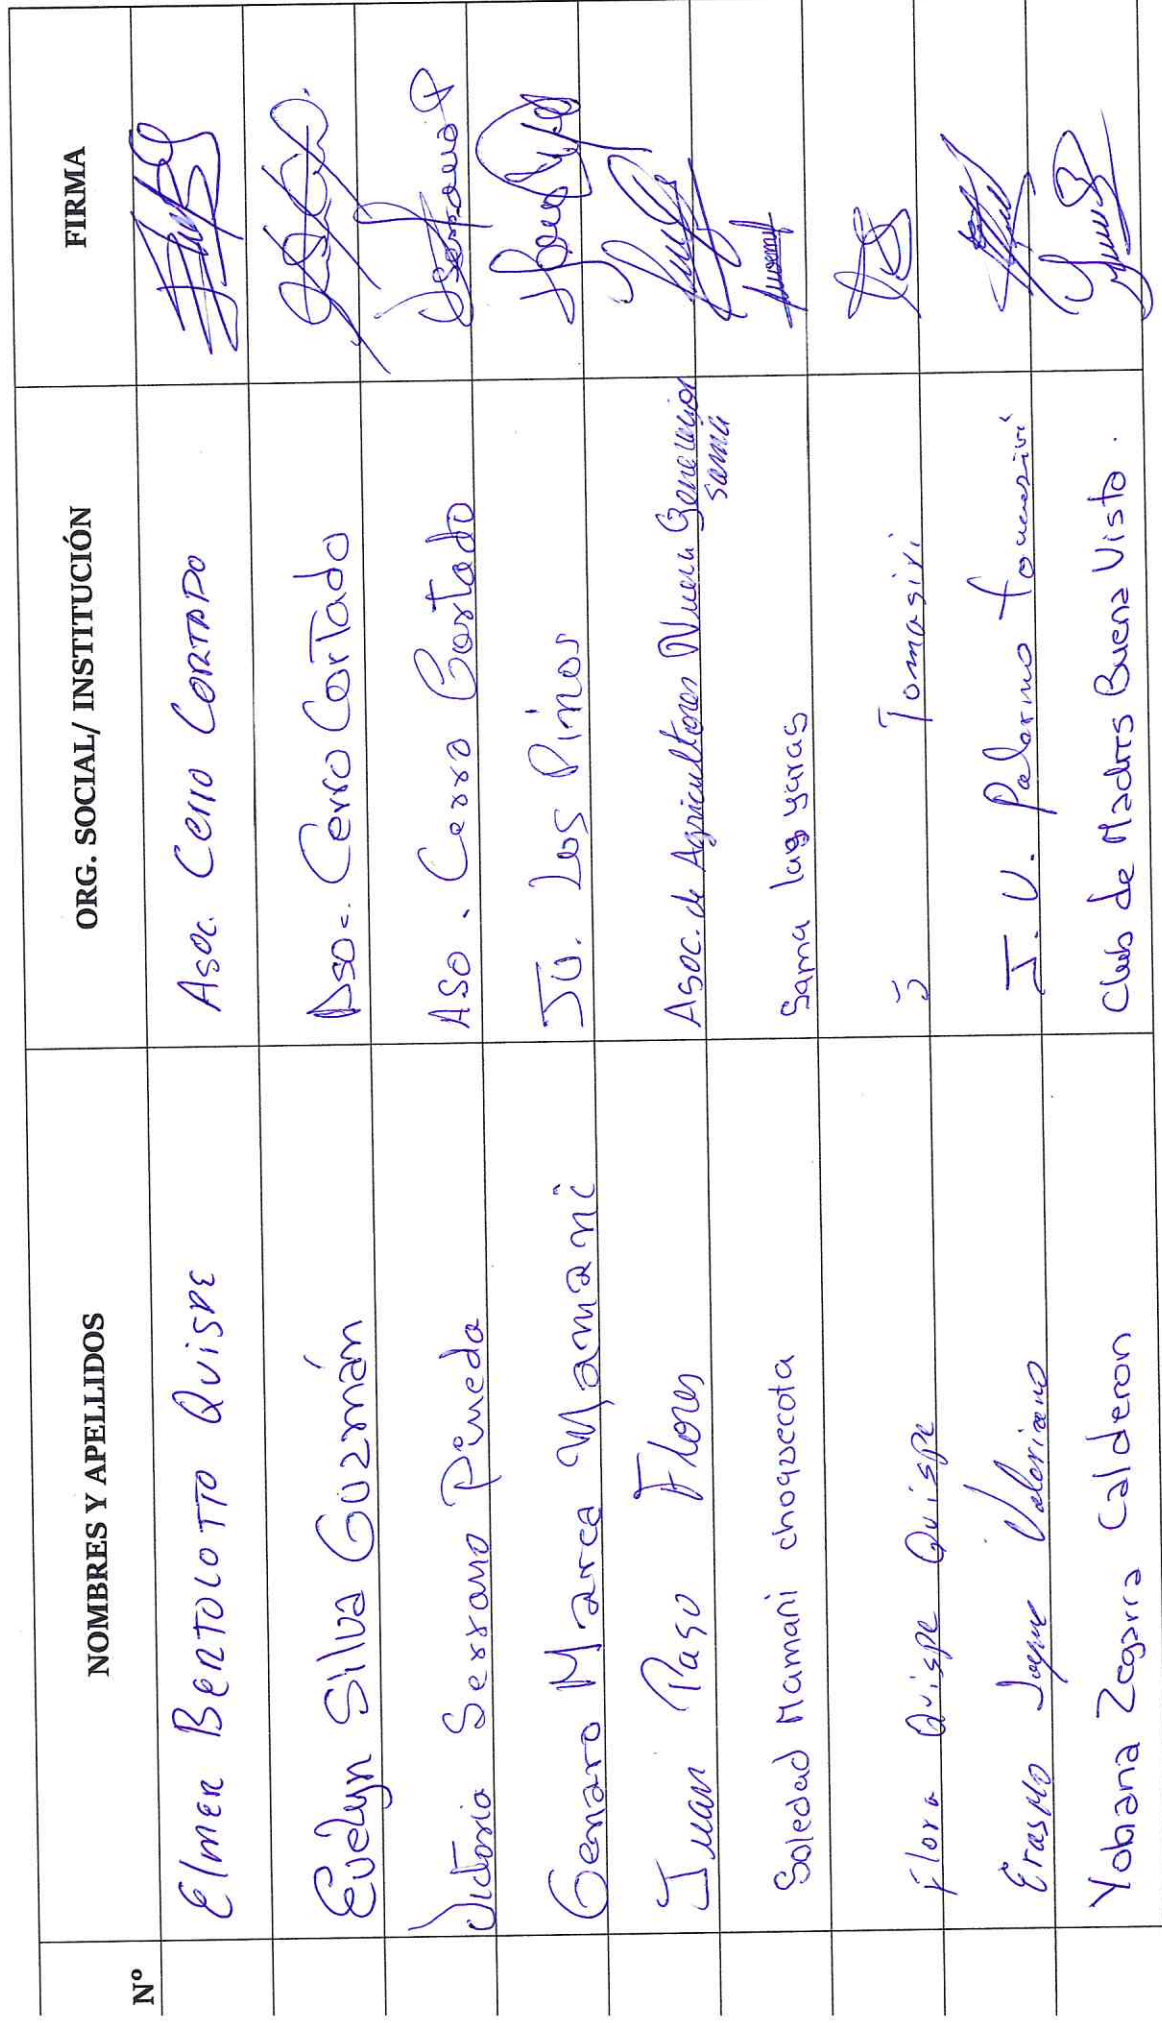 Nº NOMBRES Y APELLIDOS ORG. SOCIAL/ INSTITUCIÓN FIRMA
Elmer BERTOLOTTO QUISPE Asoc. Cerro CORTADO
Evelyn Silva Guzmán Aso. Cerro Cortado
Victoria Serrano Pineda Aso. Cerro Cortado
Genaro Marca Mamani JU. Los Pinos
Juan Paso Flores Asoc. de Agricultores Nueva Generacion
sama
Soledad Mamani choquecota Sama las yaras
Flora Quispe Quispe Tomasiri
Erasmo Valeriano J. V. Palermo
Yobana Zegarra Calderon Club de Madres Buena Vista.